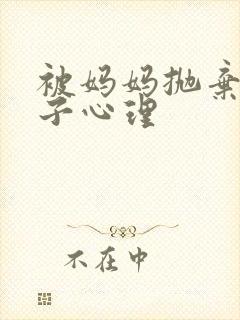 被妈妈抛弃
子心理
不在中